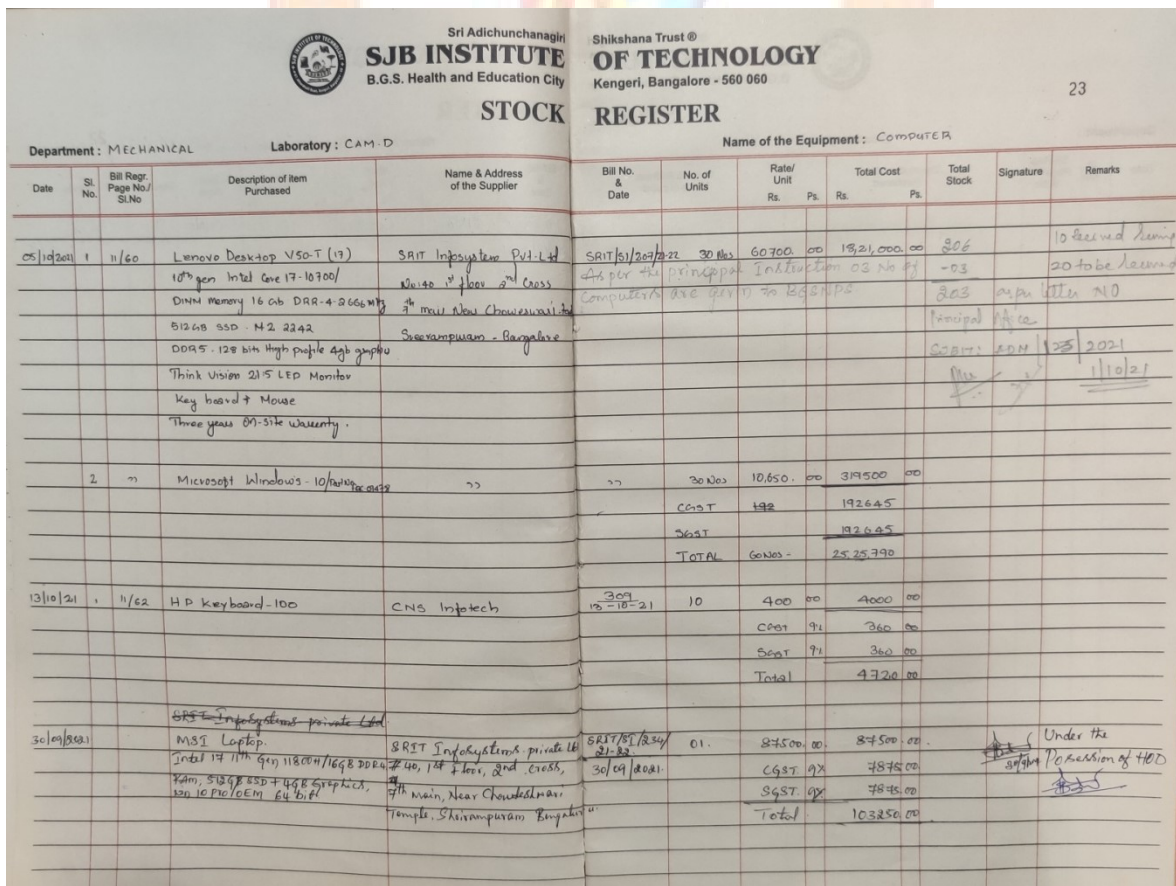 Sri Adichunchanagiri Shikshana Trust ®
SJB INSTITUTE OF TECHNOLOGY
B.G.S. Health and Education City Kengeri, Bangalore - 560 060
23
STOCK REGISTER
Department : MECHANICAL Laboratory : CAM-D Name of the Equipment : COMPUTER
Date Sl. No. Bill Regr. Page No./ Sl.No Description of item Purchased Name & Address of the Supplier Bill No. & Date No. of Units Rate/ Unit Rs. Ps. Total Cost Rs. Ps. Total Stock Signature Remarks
05/10/2021 1 11/60 Lenovo Desktop V50-T (i7) SRIT Infosystem Pvt-Ltd SRIT/S1/207/21-22 30 Nos 60700. 00 18,21,000. 00 206 10
10th gen Intel Core i7-10700/ No:40 1st floor 2nd Cross As per the principal Instruction 03 No of -03 20 to be
DIMM memory 16 Gb DRR-4-2666 MHz 7th main Near Computers are given to BGSNPS. 203 as per letter NO
512GB SSD - M2 2242 Sreerampuram - Bangalore Principal office
DDR5 - 128 bits High profile 4gb SJBIT: 2021
Think Vision 21.5 LED Monitor 1/10/21
Key board + Mouse
Three years On-site warrenty.
2 " Microsoft Windows - 10/ " " 30 Nos 10,650. 00 319500 00
CGST 192 192645
SGST 192645
TOTAL 60 Nos - 25,25,790
13/10/21 1 11/62 HP Keyboard-100 CNS Infotech 309 10 400 00 4000 00
13-10-21
CGST 9% 360 00
SGST 9% 360 00
Total 4720 00
SRIT Infosystems private Ltd.
30/09/2021 MSI Laptop. SRIT Infosystems private Ltd SRIT/SI/234/ 01. 87500. 00. 87500.00. Under the
21-22
Intel i7 11th Gen 11800H/16GB DDR4 # 40, 1st floor, 2nd cross, 30/09/2021. CGST. 9% 7875.00 Possession of HOD
RAM, 512GB SSD + 4GB Graphics, 7th main, Near Chowdeshwari SGST. 9% 7875.00
Win 10 Pro/OEM 64 bit Temple, Shrirampuram Total 103250.00